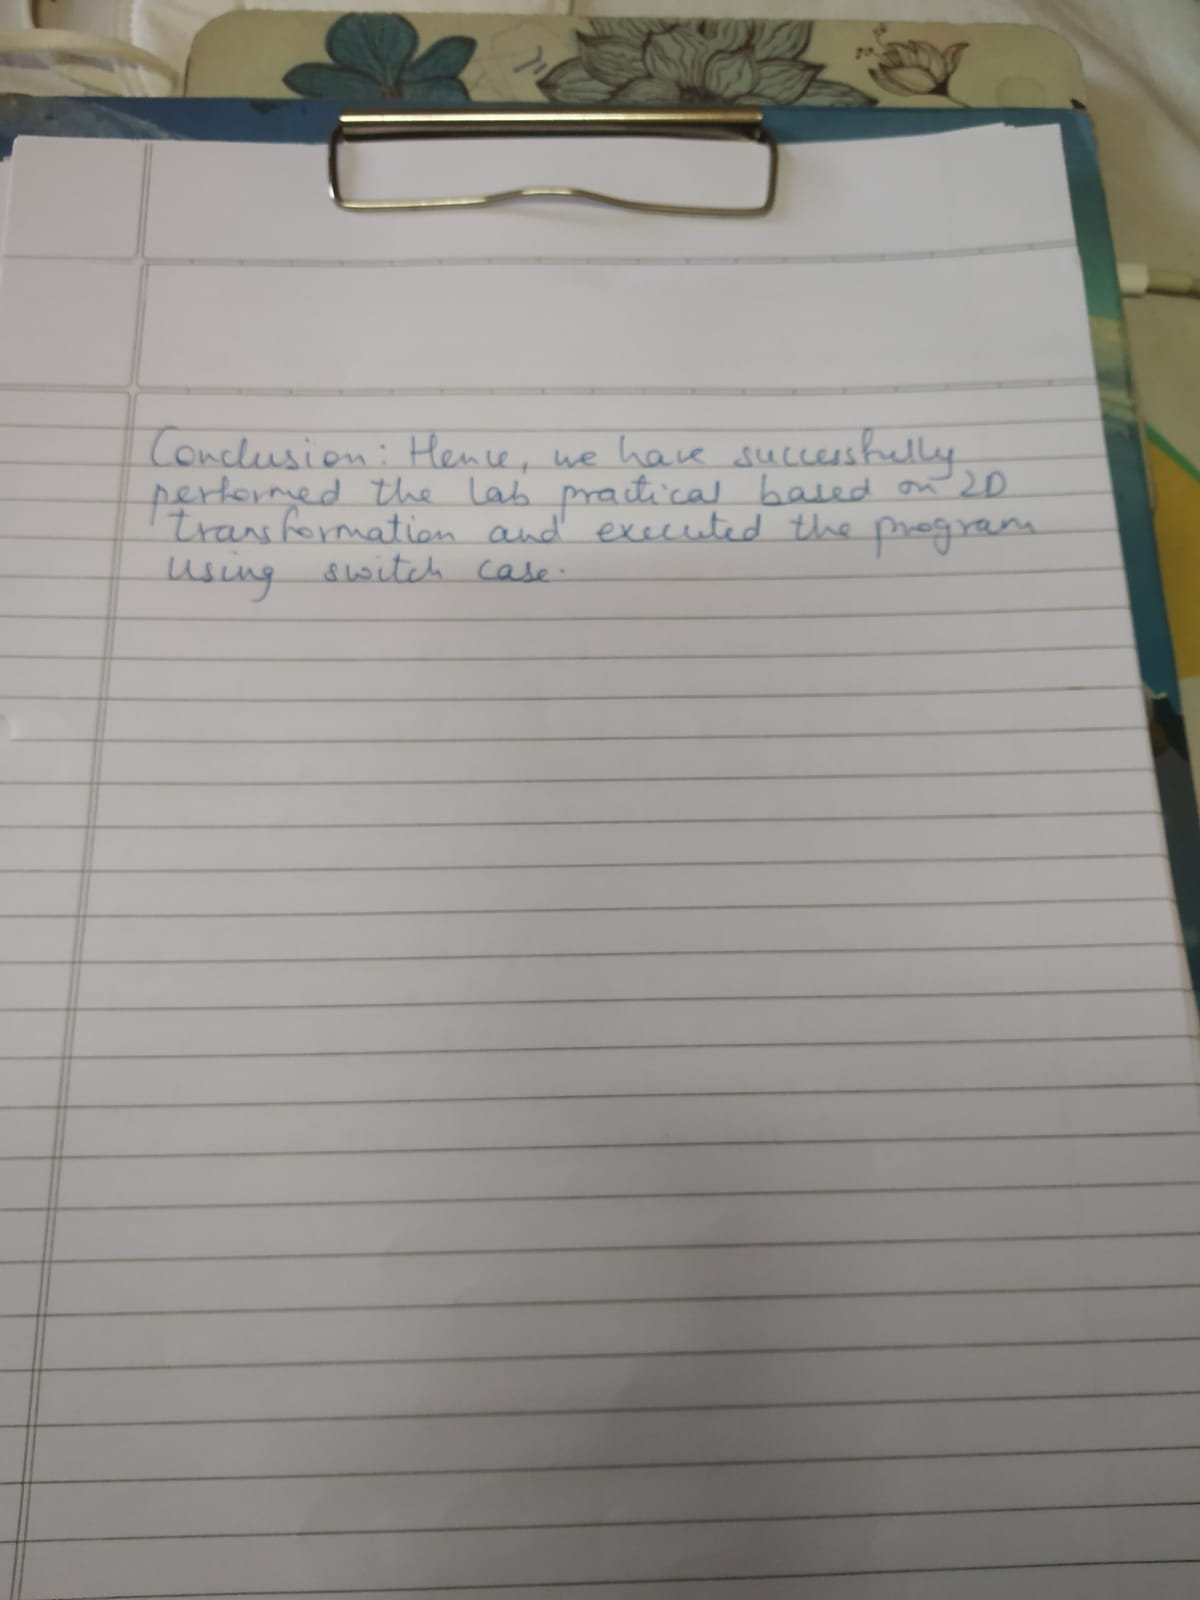 Conclusion: Hence, we have successfully
performed the lab practical based on 2D
transformation and executed the program
using switch case.